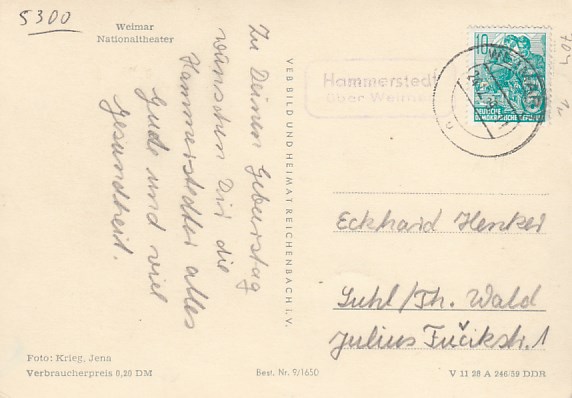 5300
Weimar
Nationaltheater
Zu Deinem Geburtstag
wünschen Dir die
Hammerstedter alles
Gute und viel
Gesundheit.
VEB BILD UND HEIMAT REICHENBACH i. V.
Hammerstedt
über Weimar
10
WEIMAR
DEUTSCHE
DEMOKRATISCHE REPUBLIK
Eckhard Henkel
Suhl/Th. Wald
Julius Fučikstr. 1
Foto: Krieg, Jena
Verbraucherpreis 0,20 DM
Best. Nr. 9/1650
V 11 28 A 246/59 DDR